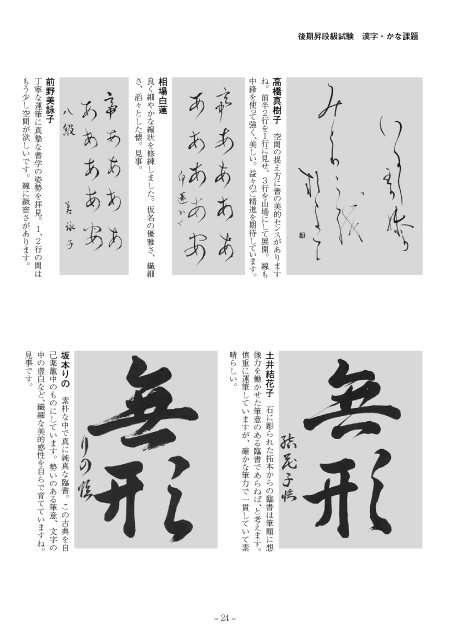 後期昇段級試験　漢字・かな課題
高橋真樹子　空間の捉え方に書の美的センスがあります
ね。前半2行を1行に見せ、3行を山場として展開。線も
中鋒を使って強く、美しい。益々のご精進を期待しています。
相場白蓮
良く細やかな線状を修練しました。仮名の優雅さ、繊細
さ、滔々とした懐。見事。
あ あ あ あ
あ あ あ
前野美詠子
丁寧な運筆に真摯な書学の姿勢を拝見。1、2行の間は
もう少し空間が欲しいです。線に緻密さがあります。
あ あ あ
あ あ あ
八級
美詠子
土井結花子　石に彫られた拓本からの臨書は筆順に想
像力を働かせた筆意のある臨書であらねば、と考えます。
慎重に運筆していますが、確かな筆力で一貫していて素
晴らしい。
無形
結花子臨
坂本りの　素朴な中で真に純真な臨書。この古典を自
己薬籠中のものにしています。勢いのある筆意、文字の
中の虚白など、繊細な美的感性を自らで育てていますね。
見事です。
無形
りの臨
– 24 –